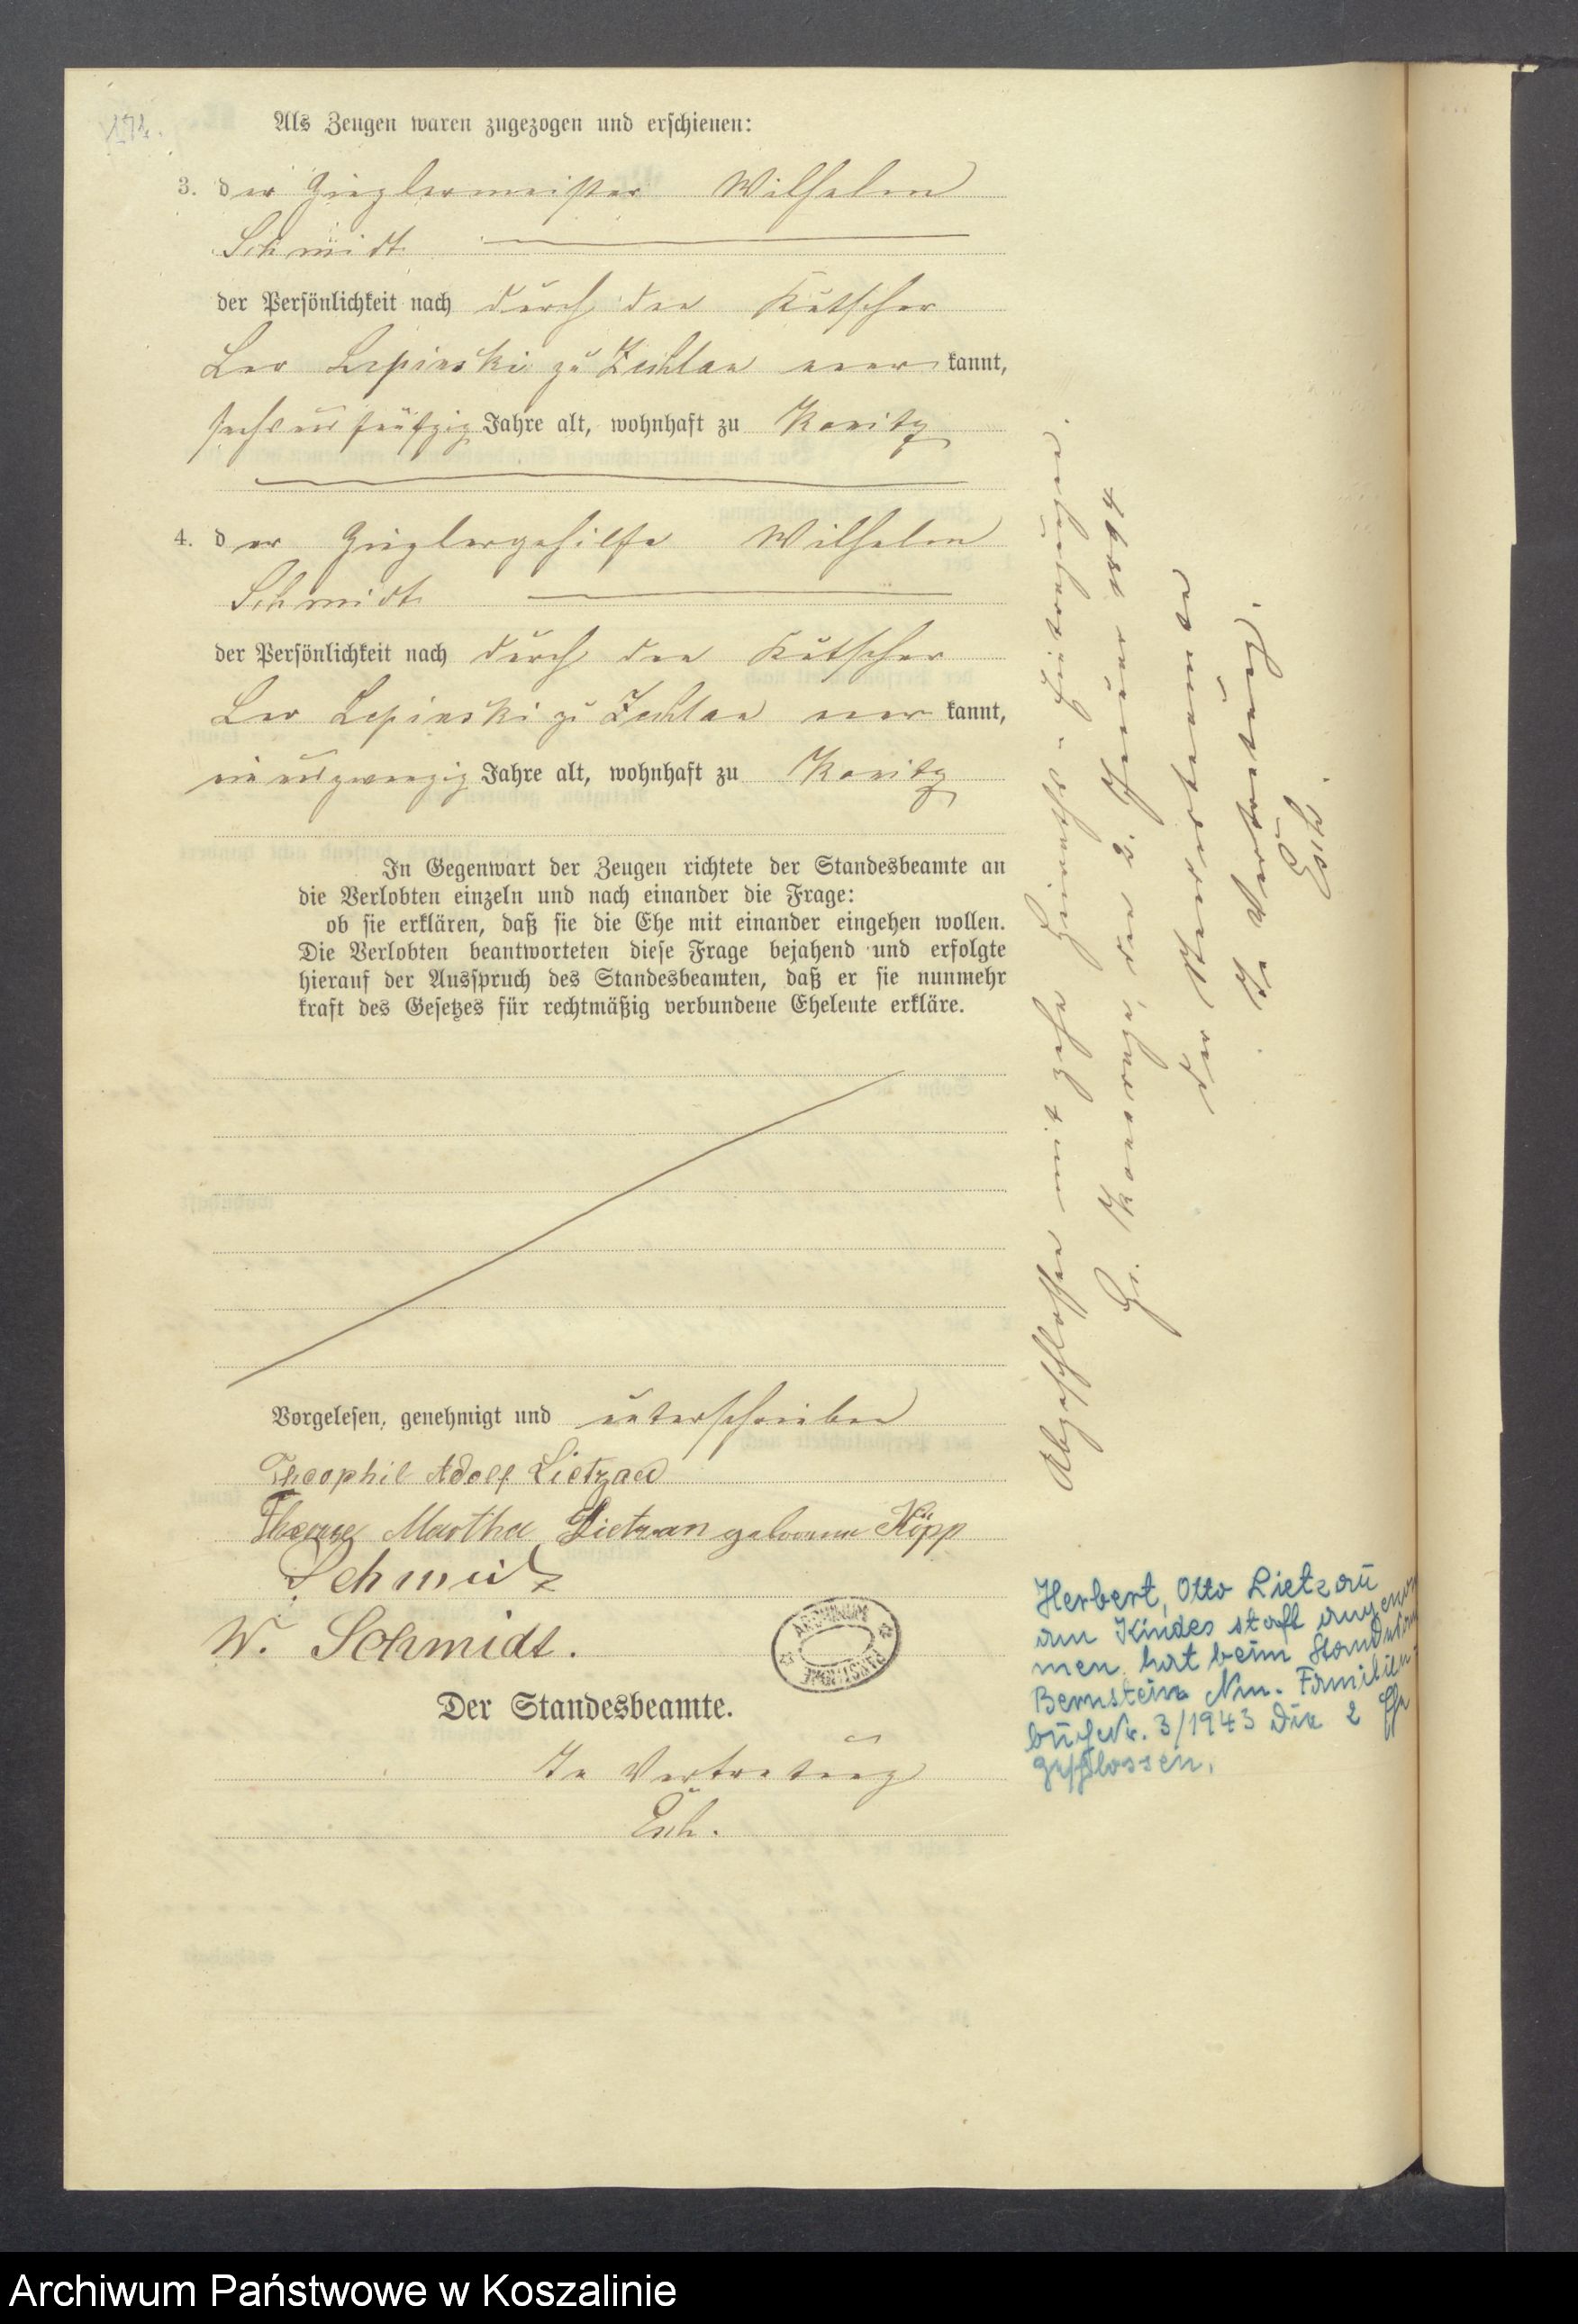 174.
Als Zeugen waren zugezogen und erschienen:
3. der Zieglermeister Wilhelm
Schmidt
der Persönlichkeit nach durch den Kutscher
Leo Lepinski zu Zechlau aner kannt,
sechsundfünfzig Jahre alt, wohnhaft zu Konitz
4. der Zieglergehilfe Wilhelm
Schmidt
der Persönlichkeit nach durch den Kutscher
Leo Lepinski zu Zechlau aner kannt,
einundzwanzig Jahre alt, wohnhaft zu Konitz
In Gegenwart der Zeugen richtete der Standesbeamte an
die Verlobten einzeln und nach einander die Frage:
ob sie erklären, daß sie die Ehe mit einander eingehen wollen.
Die Verlobten beantworteten diese Frage bejahend und erfolgte
hierauf der Ausspruch des Standesbeamten, daß er sie nunmehr
kraft des Gesetzes für rechtmäßig verbundene Eheleute erkläre.
Vorgelesen, genehmigt und unterschrieben
Theophil Adolf Lietzau
Martha Lietzau geborene Köpp
Schmidt
W. Schmidt.
ARCHIWUM
PAŃSTWOWE
Der Standesbeamte.
In Vertretung
Esch.
Abgeschlossen mit zehn Heiraths-Eintragungen.
den 2. Januar 1894
Der Standesbeamte
In Vertretung.
Esch.
Herbert, Otto Lietzau
an Kindes statt angenom
men hat beim Standesam
Bernstein Nm. Familien
buch Nr. 3/1943 die 2 Ehe
geschlossen.
Archiwum Państwowe w Koszalinie